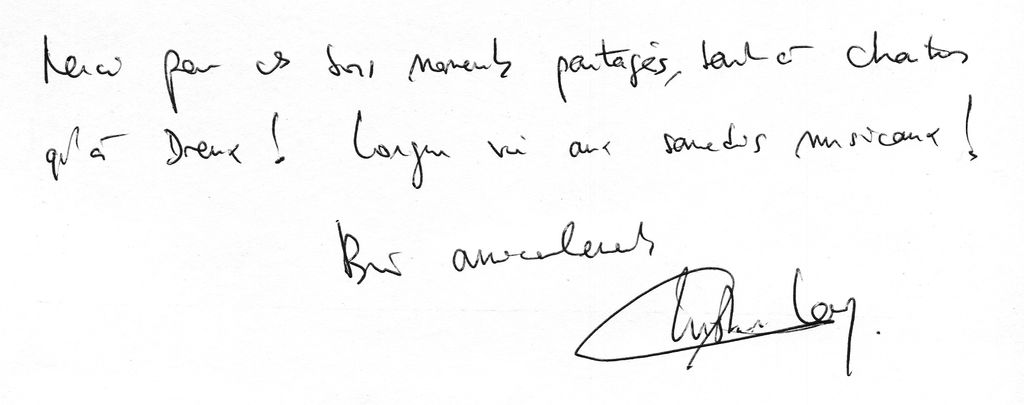 Merci pour ces bons moments partagés, tant à Chartres
qu'à Dreux ! Longue vie aux samedis musicaux !
Bien amicalement